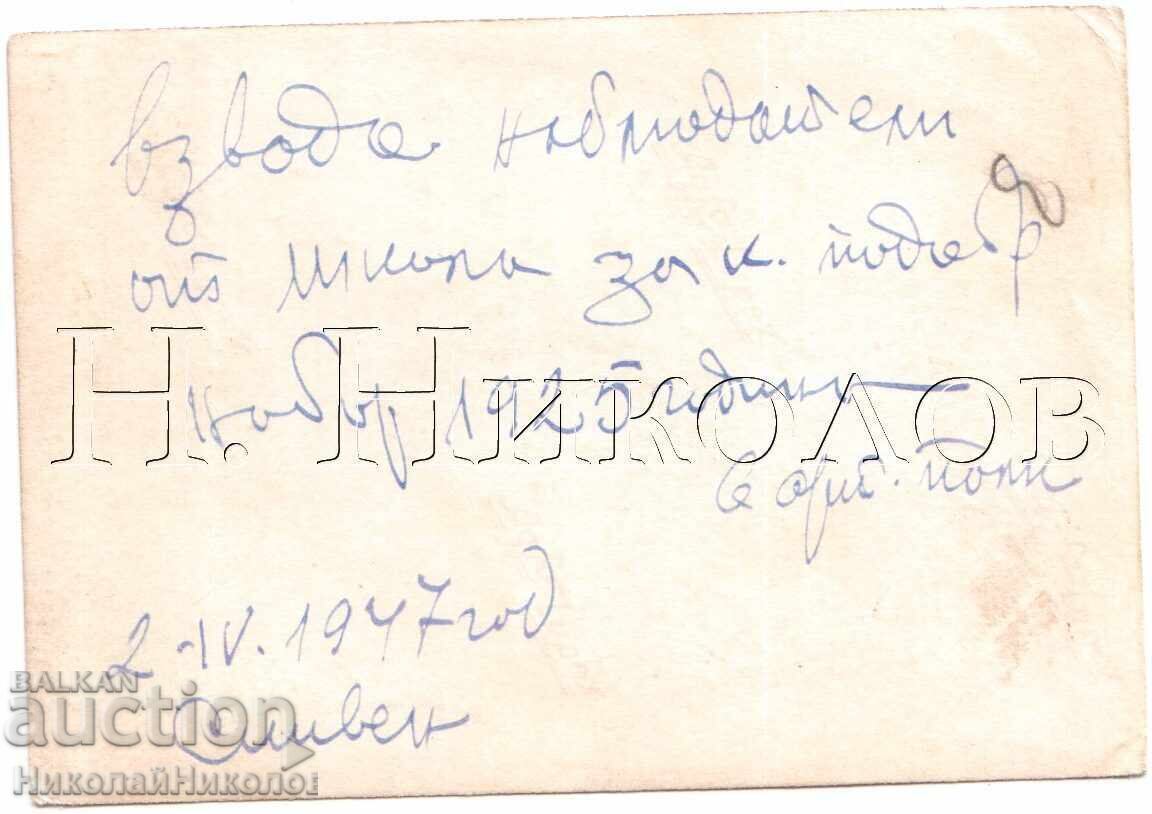 взвода наблюдатели
от школа за к. подофр
набор 1925 година
6 арт. полк
2-IV. 1947 год
Сливен
Н. НИКОЛОВ
BALKAN
auction
НИКОЛАЙНИКОЛОВ